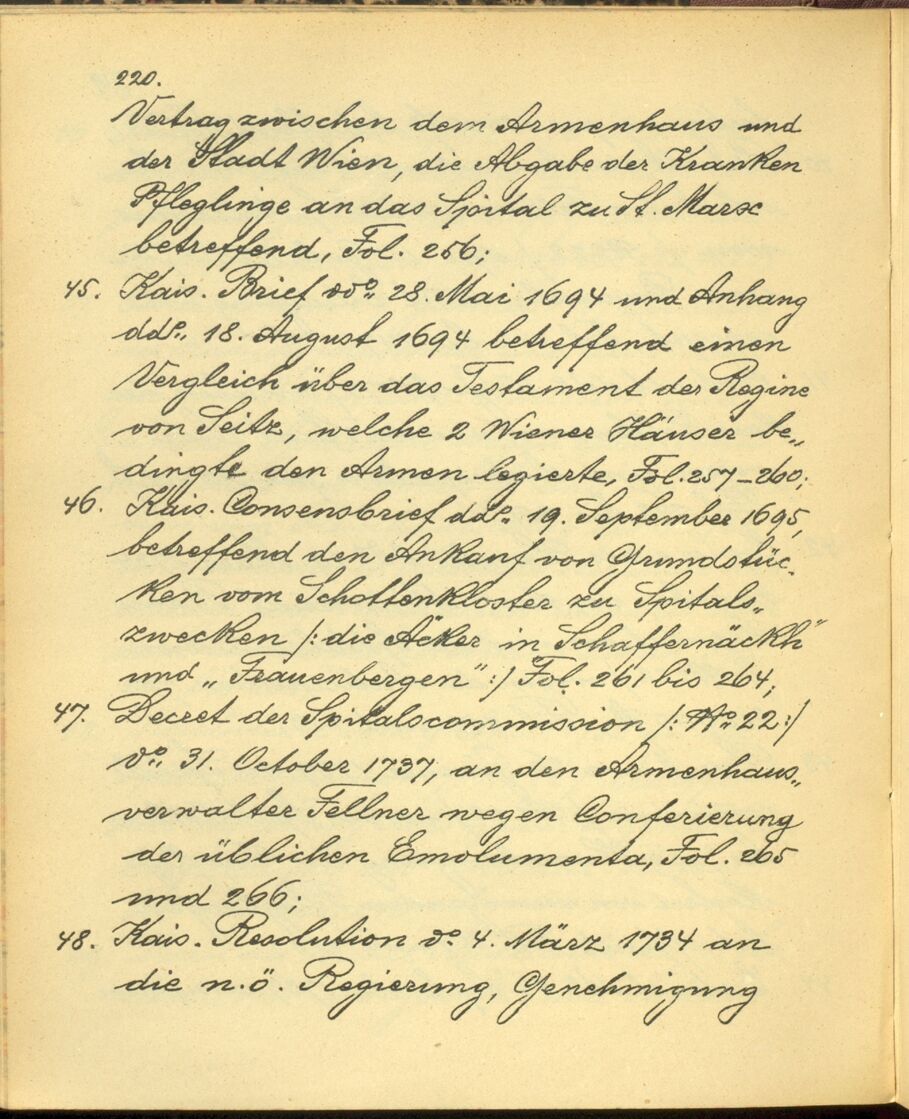 220.
Vertrag zwischen dem Armenhaus und
der Stadt Wien, die Abgabe der Kranken
Pfleglinge an das Spital zu St. Marx
betreffend, Fol. 256;
45. Kais. Brief ddo. 28. Mai 1694 und Anhang
ddo. 18. August 1694 betreffend einen
Vergleich über das Testament der Regine
von Seitz, welche 2 Wiener Häuser be„
dingte den Armen legierte, Fol. 257-260;
46. Kais. Consensbrief ddo. 19. September 1695,
betreffend den Ankauf von Grundstüc„
ken vom Schottenkloster zu Spitals„
zwecken /: die Äcker in Schaffernäckh"
und „Frauenbergen" :/ Fol. 261 bis 264;
47. Decret der Spitalscommission /: No. 22 :/
do. 31. October 1737, an den Armenhaus„
verwalter Fellner wegen Conferierung
der üblichen Emolumenta, Fol. 265
und 266;
48. Kais. Resolution do. 4. März 1734 an
die n.ö. Regierung, Genehmigung